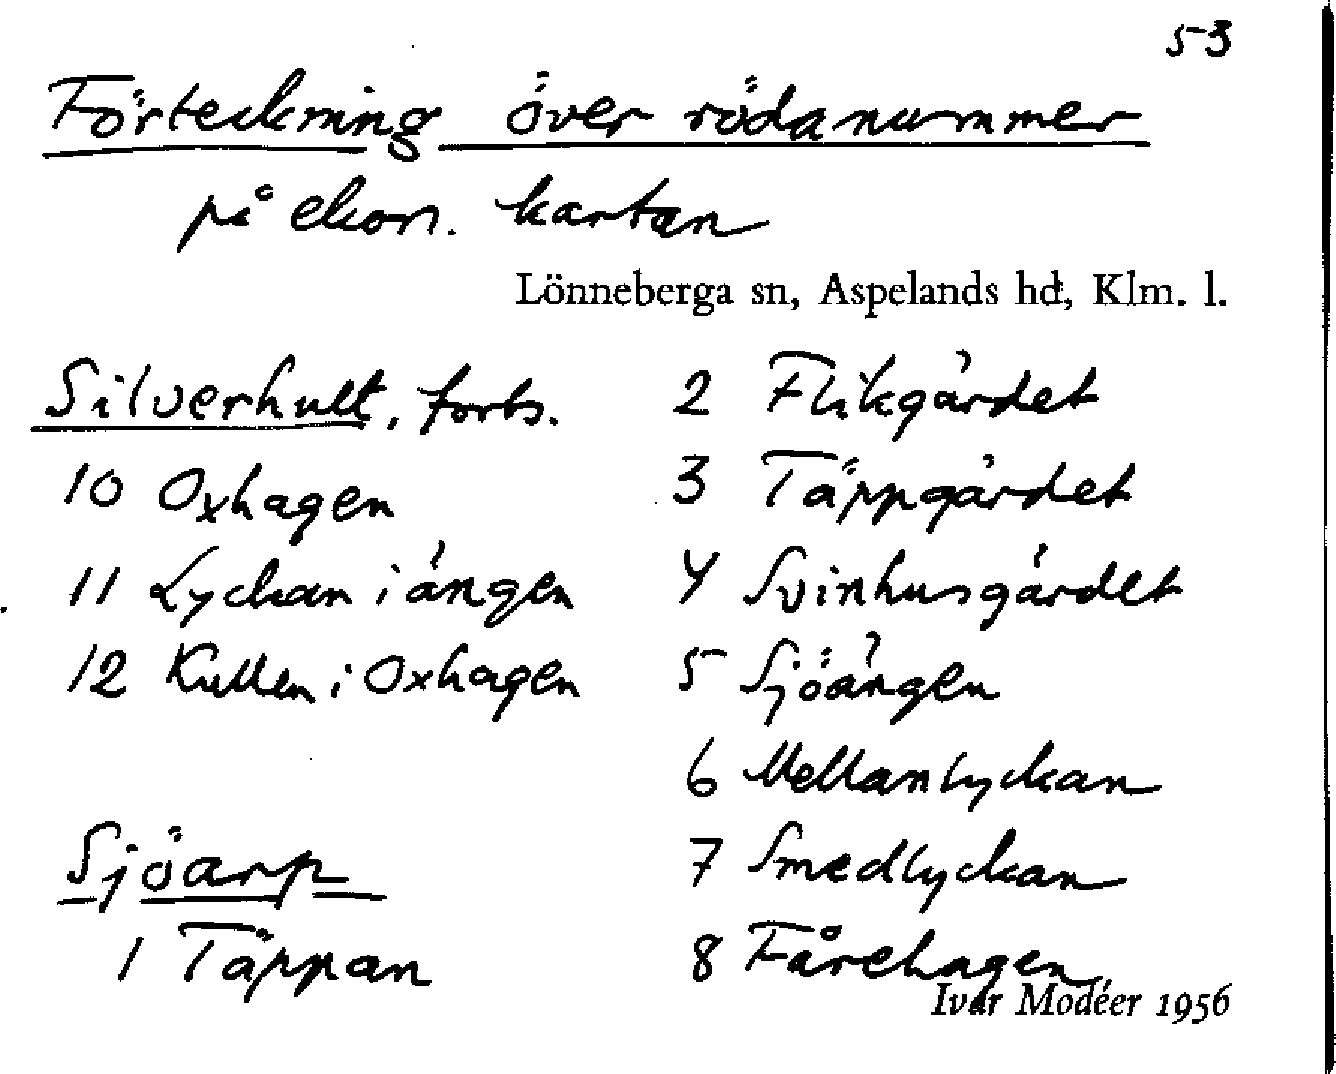 53
Förteckning över röda nummer
på ekon. kartan
Lönneberga sn, Aspelands hd, Klm. l.
Silverhult, forts.
10 Oxhagen
11 Lyckan i ängen
12 Kullen i Oxhagen
Sjöarp
1 Täppan
2 Flikgärdet
3 Täppgärdet
4 Svinhusgärdet
5 Sjöängen
6 Mellanlyckan
7 Smedlyckan
8 Fårehagen
Ivar Modéer 1956